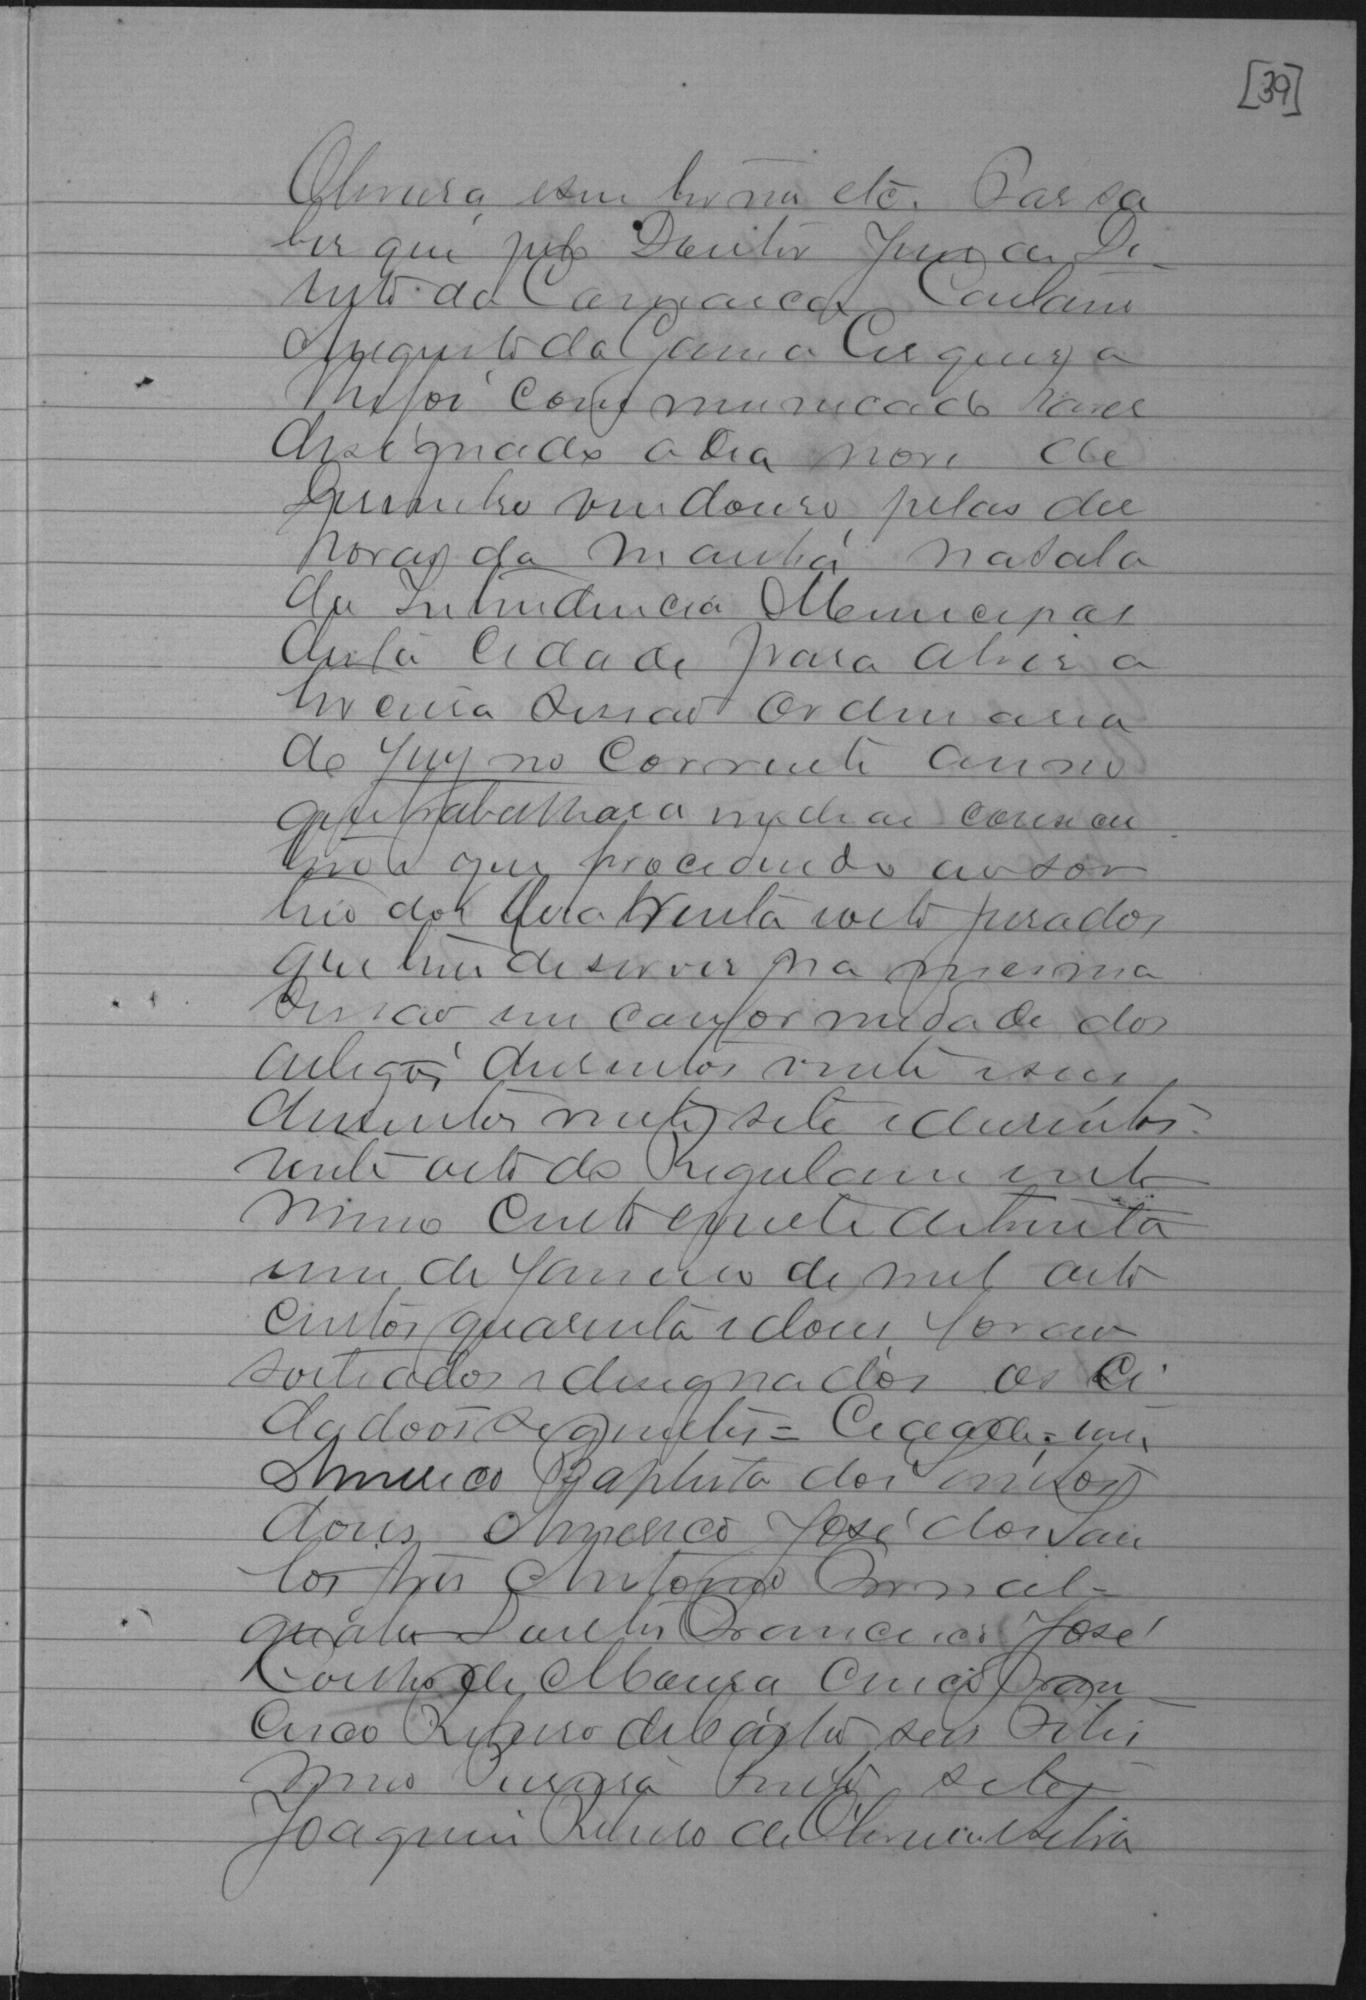 [39]
Oliveira, em forma etc. Faz sa
ber que pelo Doutor Juiz de Di
reito da Comarca Caetano
Augusto da Gama Cerqueira
lhe foi communicado haver
designado o dia nove de
vindouro, pelas dez
horas da manhã na sala
da Intendencia Municipal
desta Cidade para abrir a
terceira sessão ordinaria
do Jury no corrente anno
que trabalhará em dias consecu
tivos e que procedendo ao sor
teio dos trinta e oito jurados
que tem de servir na mesma
sessão em conformidade dos
artigos dusentos vinte e seis
dusentos vinte sete e dusentos
vinte oito do Regulamento
numo cento e vinte de trinta
um de Janeiro de mil oito
centos quarenta e dous forão
sorteados e designados os Ci
dadãos seguintes = Cidade = um
Americo Baptista dos Santos
dous Americo José dos San
tos tres Antonio
quatro Francisco José
Coelho de Moura Cinco Fran
cisco Ribeiro de Castro seis
Pereira sete
Joaquim Ribeiro de Oliveira e Silva